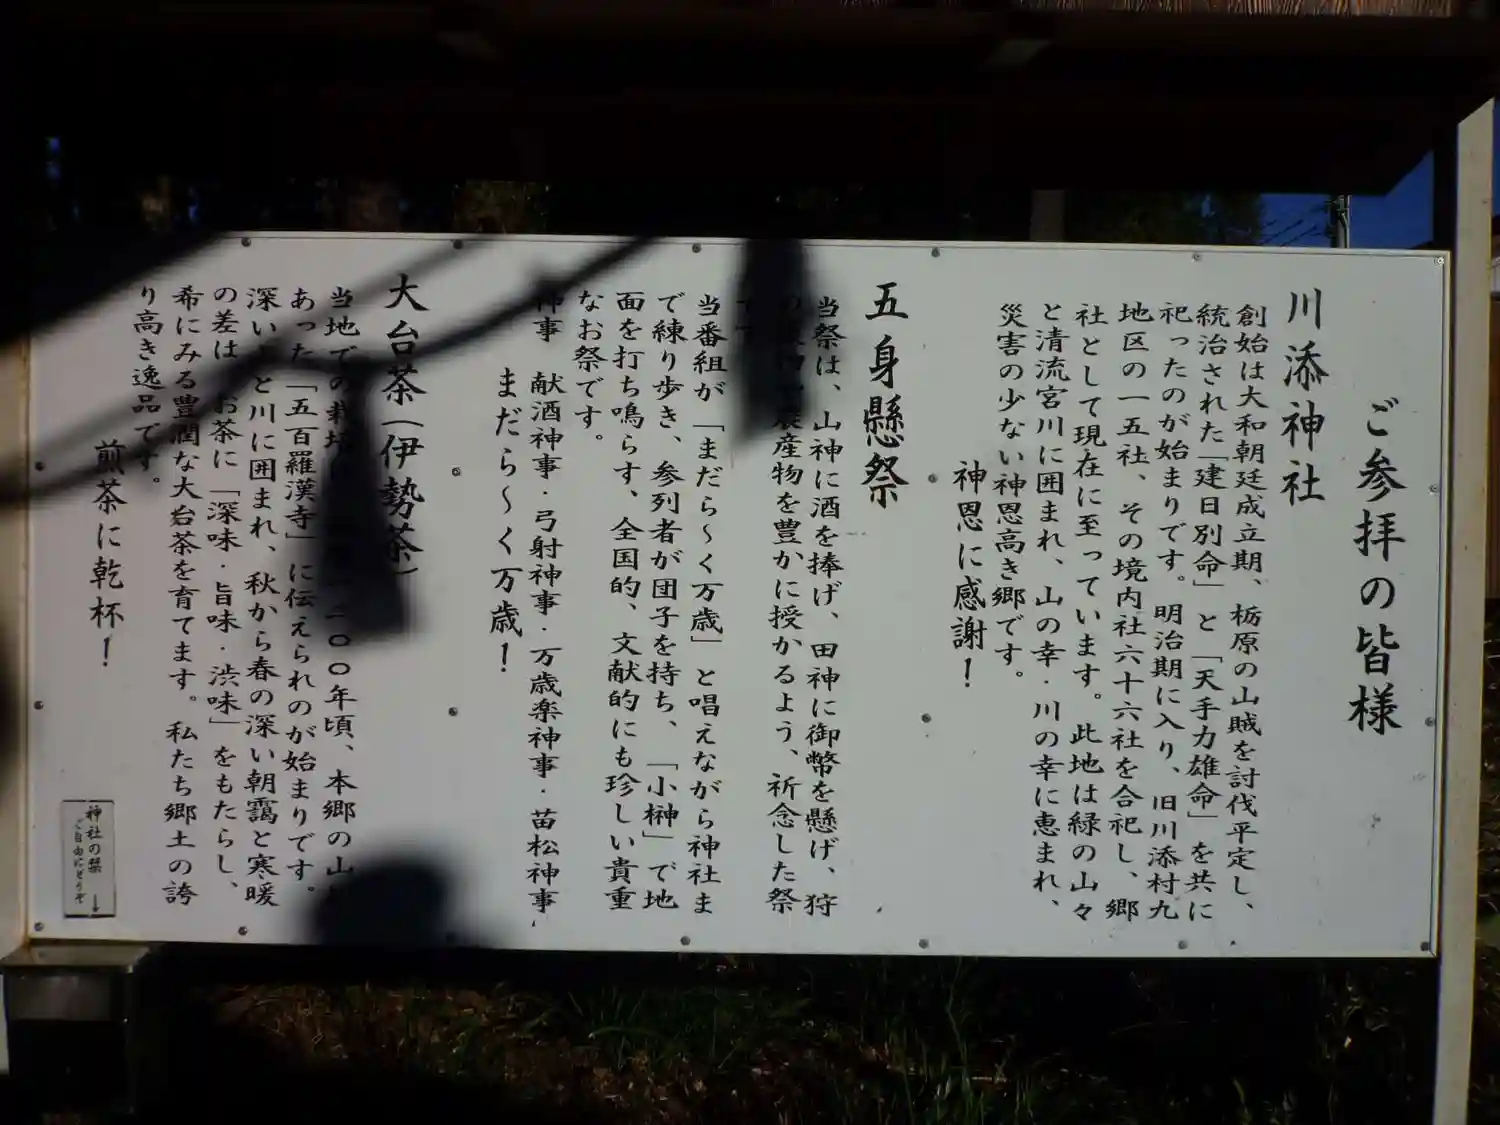 ご参拝の皆様
川添神社
創始は大和朝廷成立期、栃原の山賊を討伐平定し、
統治された「建日別命」と「天手力雄命」を共に
祀ったのが始まりです。明治期に入り、旧川添村九
地区の一五社、その境内社六十六社を合祀し、郷
社として現在に至っています。此地は緑の山々
と清流宮川に囲まれ、山の幸・川の幸に恵まれ、
災害の少ない神恩高き郷です。
神恩に感謝！
五身懸祭
当祭は、山神に酒を捧げ、田神に御幣を懸げ、狩
農産物を豊かに授かるよう、祈念した祭
当番組が「まだら～く万歳」と唱えながら神社ま
で練り歩き、参列者が団子を持ち、「小榊」で地
面を打ち鳴らす、全国的、文献的にも珍しい貴重
なお祭です。
神事　献酒神事・弓射神事・万歳楽神事・苗松神事
まだら～く万歳！
大台茶（伊勢茶）
当地での栽培 二〇〇年頃、本郷の山
あった「五百羅漢寺」に伝えられのが始まりです。
深い と川に囲まれ、秋から春の深い朝靄と寒暖
の差は お茶に「深味・旨味・渋味」をもたらし、
希にみる豊潤な大台茶を育てます。私たち郷土の誇
り高き逸品です。
煎茶に乾杯！
神社の栞
ご自由にどうぞ
↓